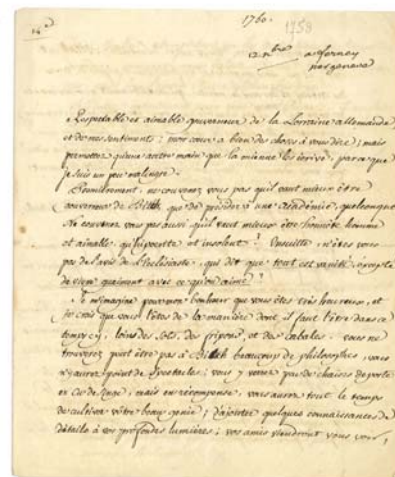 1760.
1758
12 n.bre a ferney
par geneve
Respectable et aimable gouverneur de la Lorraine allemande
et de mes sentiments; mon cœur a bien des choses a vous dire; mais
permettez qu'une autre main que la mienne les écrive, parce que
je suis un peu malingre.
Premierement, ne convenez vous pas qu'il vaut mieux être
gouverneur de Bitth, que de présider à une académie quelconque
Ne convenez vous pas aussi qu'il vaut mieux être honnête homme
et aimable qu'hipocrite et insolent? Ensuitte, n'êtes vous
pas de l'avis de l'Ecclesiaste, qui dit que tout est vanité, excepté
de vivre gaiment avec ce qu'on aime?
Je m'imagine pour mon bonheur que vous êtes très heureux, et
je crois que vous l'êtes de la manière dont il faut l'être dans ce
temps cy, loin des sots, des fripons, et des cabales. vous ne
trouverez peut être pas à Bitth beaucoup de philosophes, vous
n'y aurez point de spectacles; vous y verrez peu de chaises de poste
en cu de singe, mais en récompense, vous aurez tout le temps
de cultiver vôtre beau génie; d'ajouter quelques connaissances de
détails à vos profondes lumières; vos amis viendront vous voir;